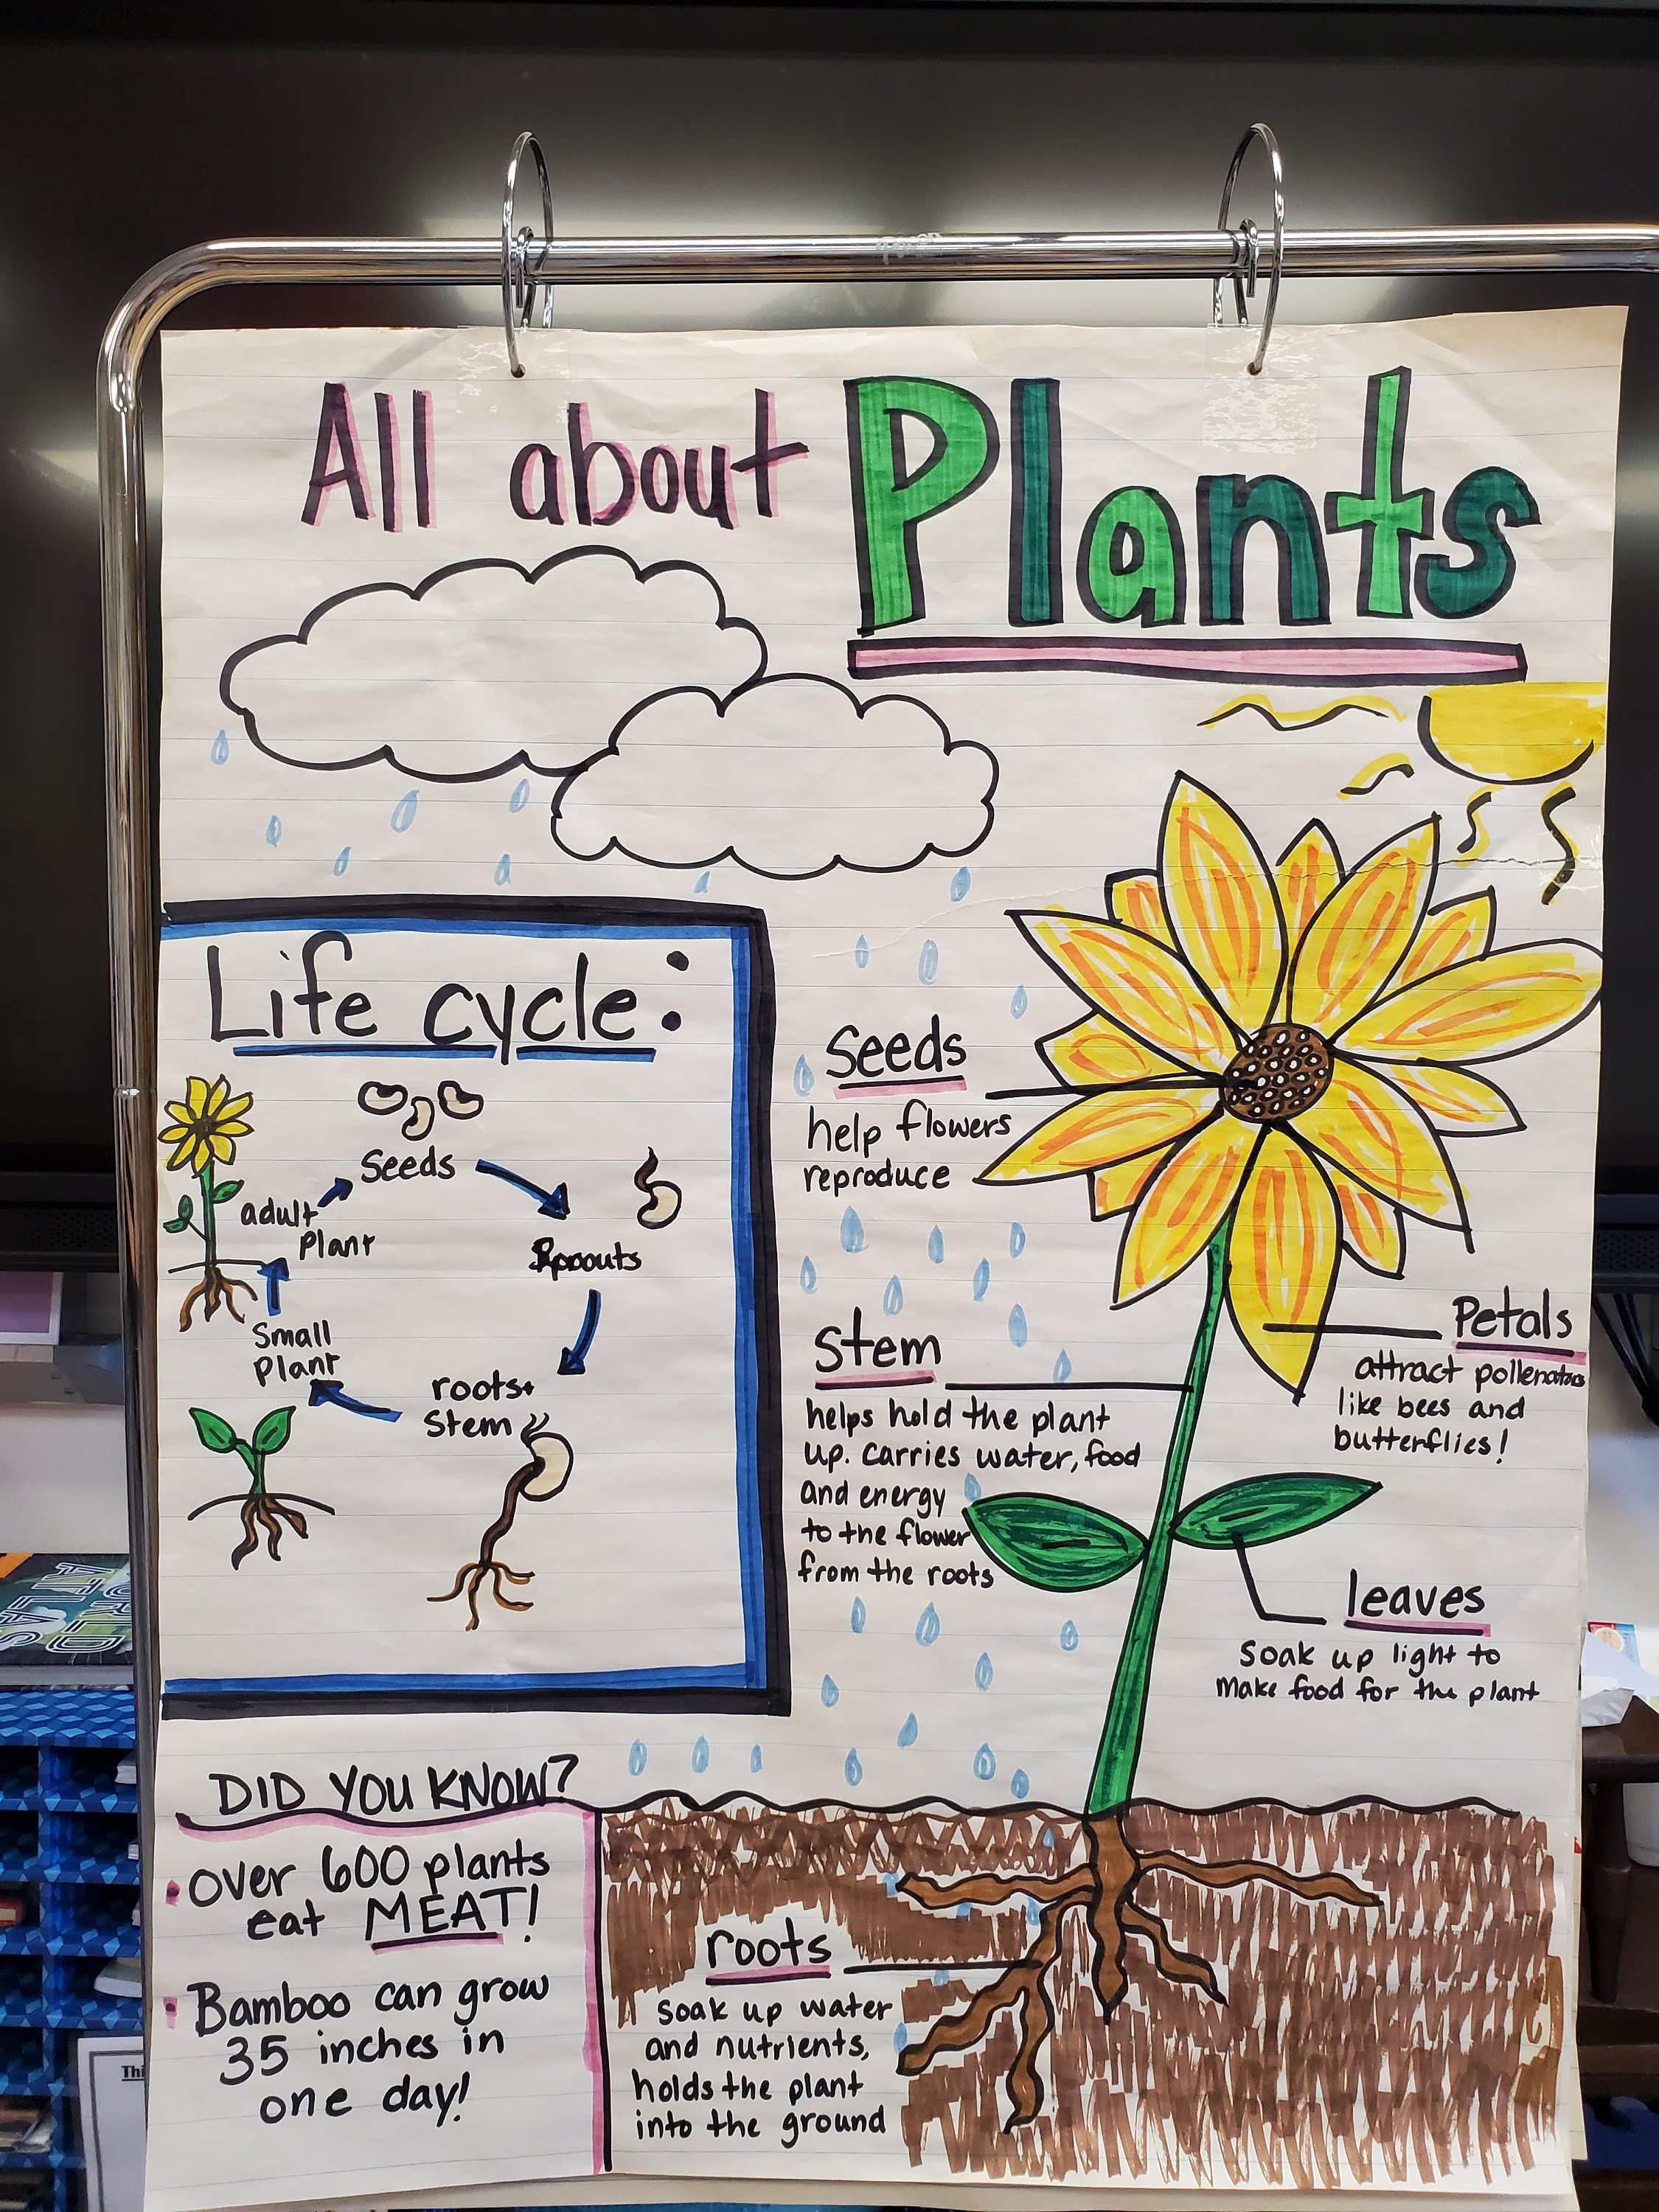 All about Plants
Life cycle:
Seeds
Sprouts
roots+
Stem
Small
Plant
adult
Plant
Seeds
help flowers
reproduce
Stem
helps hold the plant
up. carries water, food
and energy
to the flower
from the roots
Petals
attract pollenators
like bees and
butterflies!
leaves
soak up light to
make food for the plant
DID YOU KNOW?
• Over 600 plants
eat MEAT!
• Bamboo can grow
35 inches in
one day!
roots
soak up water
and nutrients,
holds the plant
into the ground
WORLD
ATLAS
Thi